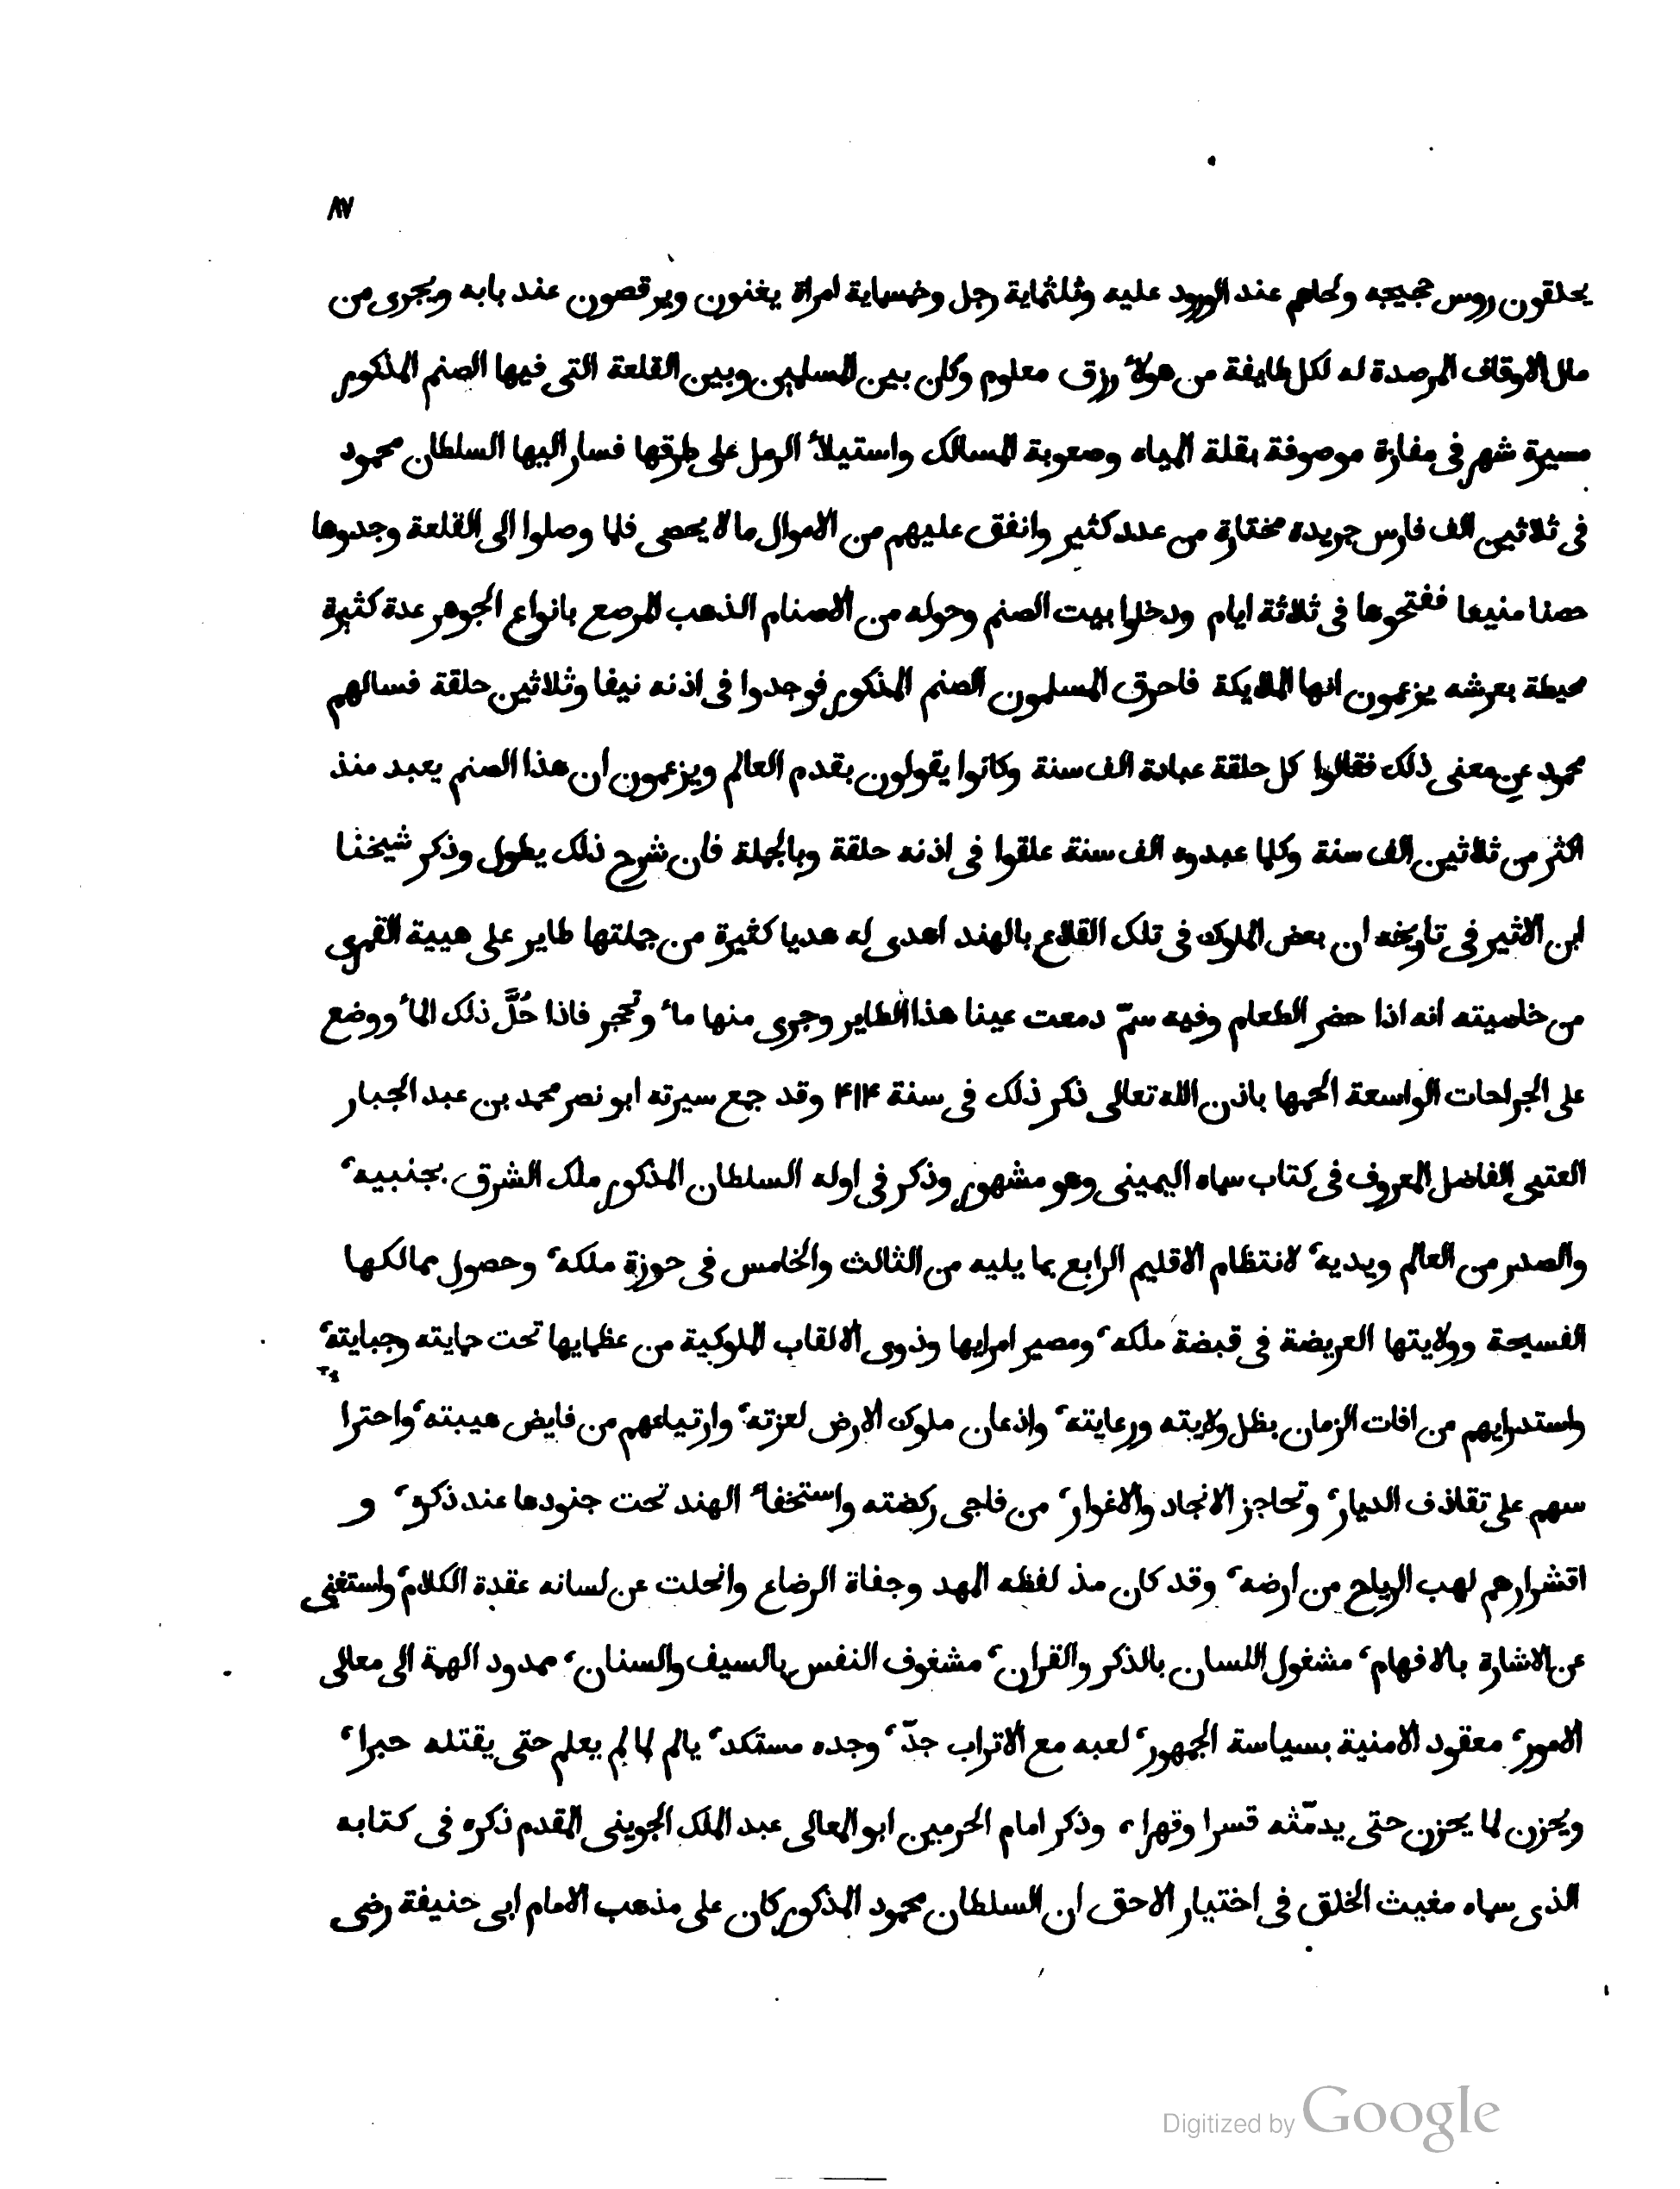 ٨٧
يحلقون روس حجيجه ولحاهم عند الورود عليه وثلثماية رجل وخمسماية امراة يغنون ويرقصون عند بابه ويجرى من
مال الاوقاف المرصدة له لكل طايفة من هولاء رزق معلوم وكان بين المسلمين وبين القلعة التى فيها الصنم المذكور
مسيرة شهر فى مفازة موصوفة بقلة المياه وصعوبة المسالك واستيلاء الرمل على طرقها فسار اليها السلطان محمود
فى ثلاثين الف فارس جريدة مختارة من عدد كثير وانفق عليهم من الاموال ما لا يحصى فلما وصلوا الى القلعة وجدوها
حصنا منيعا ففتحوها فى ثلاثة ايام ودخلوا بيت الصنم وحوله من الاصنام الذهب المرصع بانواع الجوهر عدة كثيرة
محيطة بعرشه يزعمون انها الملايكة فاحرق المسلمون الصنم المذكور فوجدوا فى اذنه نيفا وثلاثين حلقة فسالهم
محمود عن معنى ذلك فقالوا كل حلقة عبادة الف سنة وكانوا يقولون بقدم العالم ويزعمون ان هذا الصنم يعبد منذ
اكثر من ثلاثين الف سنة وكلما عبدوه الف سنة علقوا فى اذنه حلقة وبالجملة فان شرح ذلك يطول وذكر شيخنا
ابن الاثير فى تاريخه ان بعض الملوك فى تلك القلاع بالهند اهدى له هديا كثيرة من جملتها طاير على هيية القمرى
من خاصيته انه اذا حضر الطعام وفيه سمّ دمعت عينا هذا الطاير وجرى منها ماء وتحجر فاذا حُلَّ ذلك الماء ووضع
على الجراحات الواسعة الحمها باذن الله تعالى ذكر ذلك فى سنة ۴۱۴ وقد جمع سيرته ابو نصر محمد بن عبد الجبار
العتبى الفاضل المعروف فى كتاب سماه اليمينى وهو مشهور وذكر فى اوله السلطان المذكور ملك الشرق بجنبيه،
والصدر من العالم ويديه، لانتظام الاقليم الرابع بما يليه من الثالث والخامس فى حوزة ملكه، وحصول ممالكها
الفسيحة وولايتها العريضة فى قبضة ملكه، ومصير امرايها وذوى الالقاب الملوكية من عظمايها تحت حمايته وجبايته،
واستدرايهم من افات الزمان بظل ولايته ورعايته، واذعان ملوك الارض لعزته، وارتياعهم من فايض هيبته، واحترا
سهم على تقاذف الديار، وتحاجز الانجاد والاغوار، من فاجى ركضته واستخفاء الهند تحت جنودها عند ذكره، و
اقشرارهم لهب الرياح من ارضه، وقد كان مذ لفظه المهد وجفاة الرضاع وانحلت عن لسانه عقدة الكلام، واستغنى
عن الاشارة بالافهام، مشغول اللسان بالذكر والقران، مشغوف النفس بالسيف والسنان، ممدود الهمة الى معالى
الامور، معقود الامنية بسياسة الجمهور، لعبه مع الاتراب جدّ، وجده مستكد، يالم لما لم يعلم حتى يقتله خبرا،
ويحزن لما يحزن حتى يدمّثه قسرا وقهرا، وذكر امام الحرمين ابو المعالى عبد الملك الجوينى المقدم ذكره فى كتابه
الذى سماه مغيث الخلق فى اختيار الاحق ان السلطان محمود المذكور كان على مذهب الامام ابى حنيفة رضى
Digitized by Google